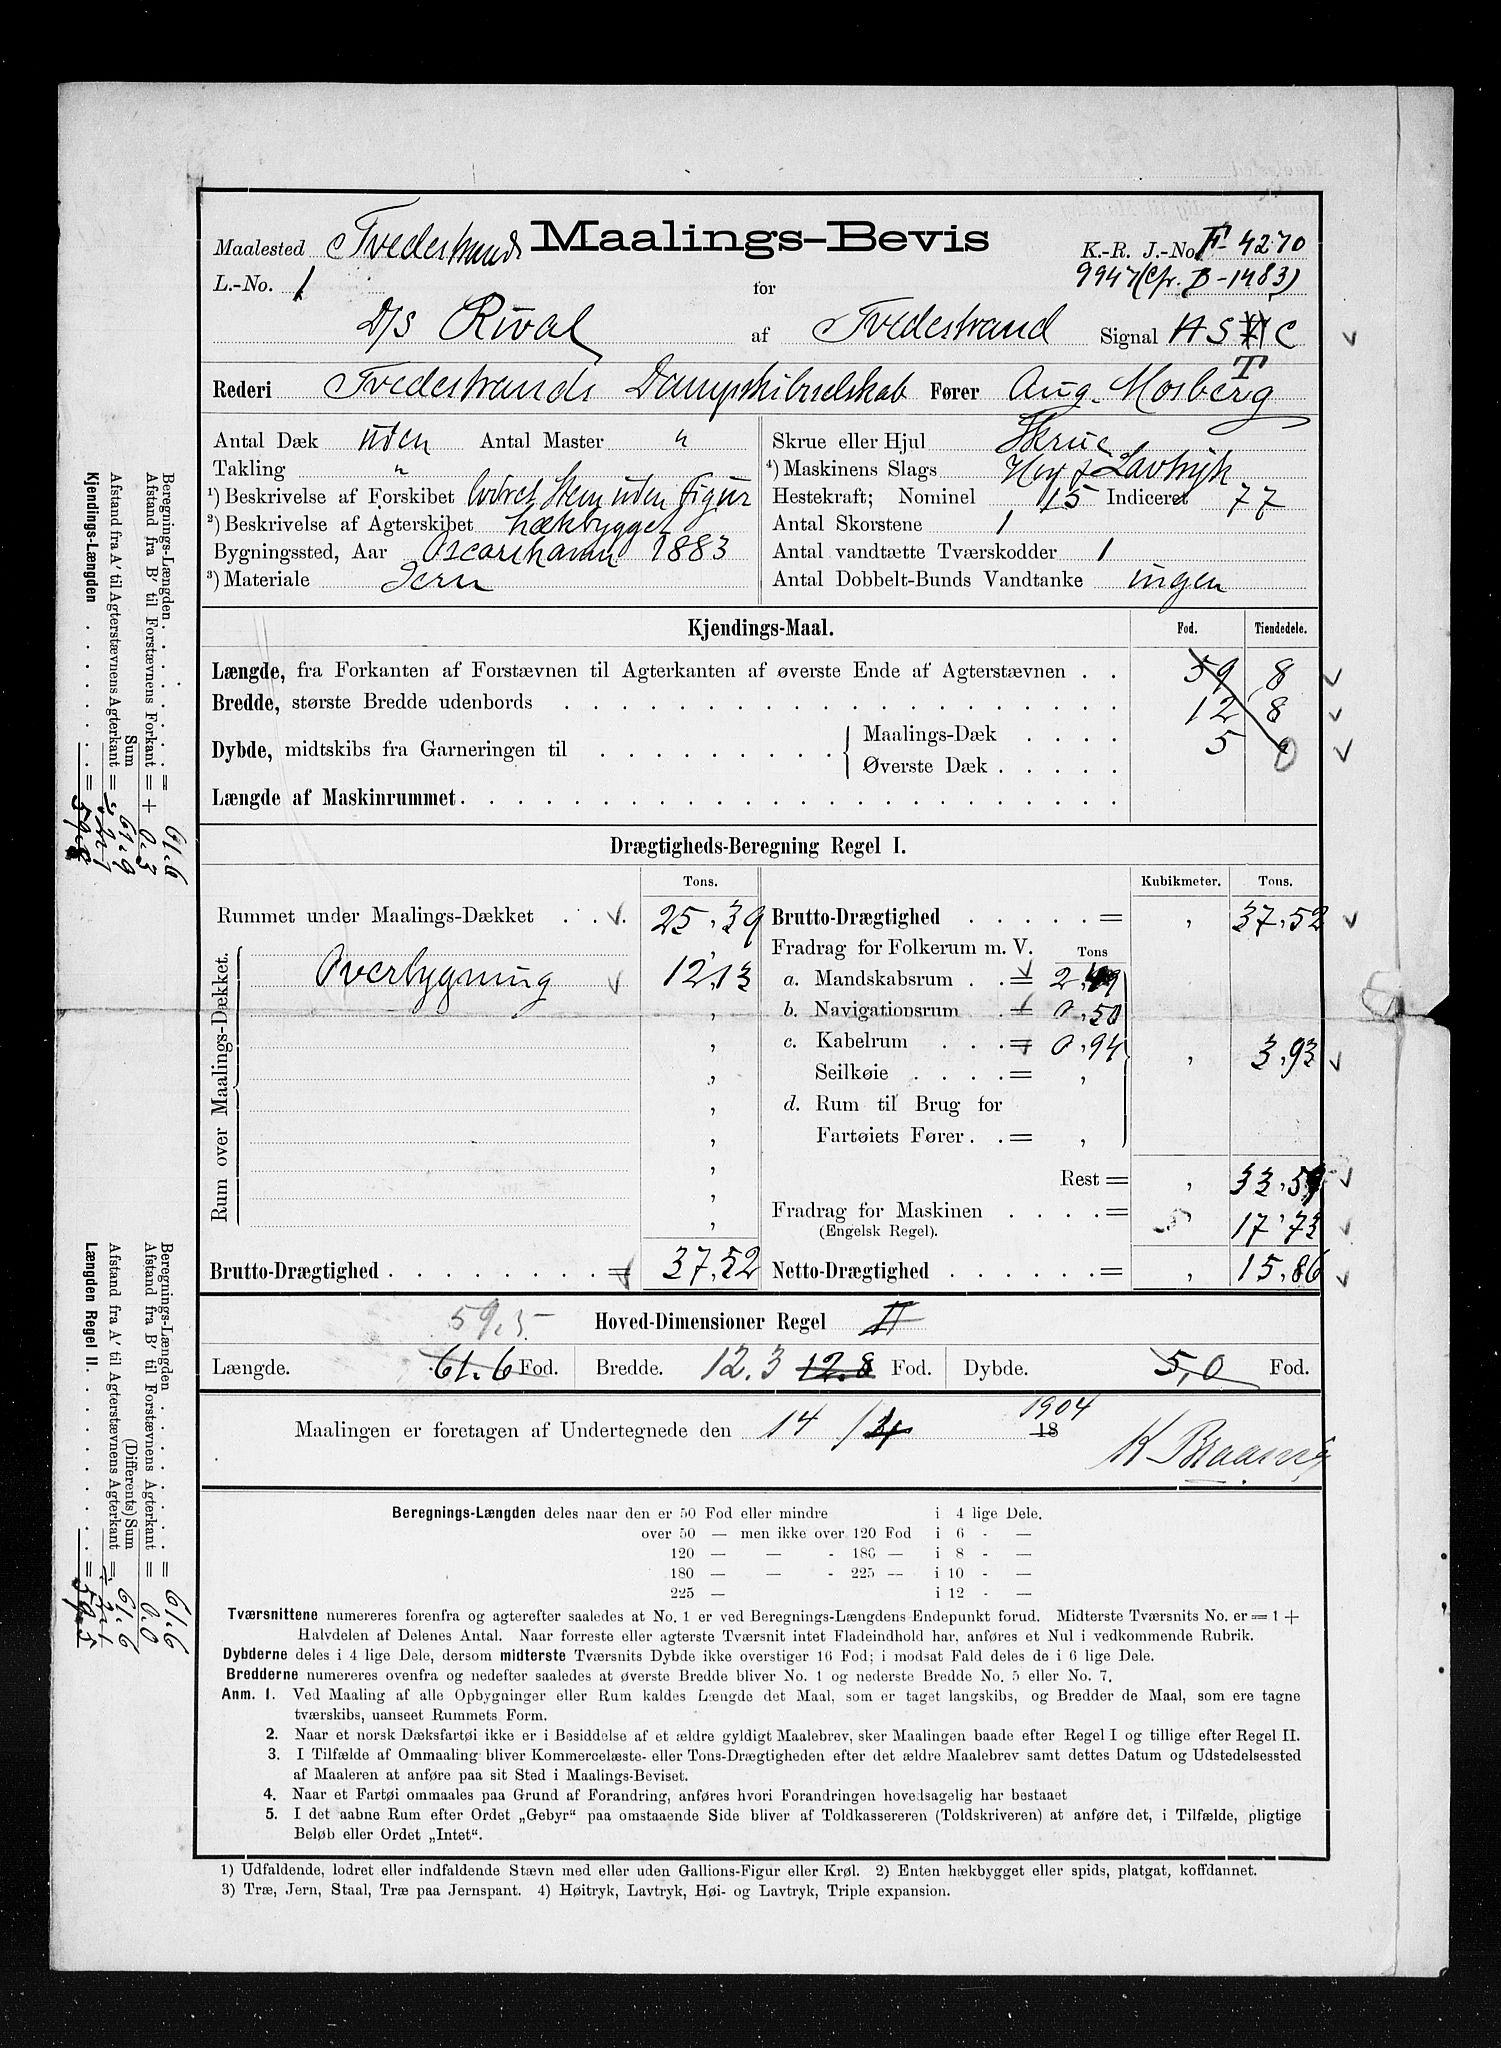 Maalested Tvedestrand Maalings-Bevis K.-R. J.-No. F-4270
L.-No. 1 for 9947 (cfr. B-1483)
D/S Rival af Tvedestrand Signal H S C
T
Rederi Tvedestrands Dampskibsselskab Fører Aug. Mosberg
Antal Dæk uden Antal Master "
Takling "
1) Beskrivelse af Forskibet lodret Stem uden Figur
2) Beskrivelse af Agterskibet hækbygget
Bygningssted, Aar Oscarshamn 1883
3) Materiale Jern
Skrue eller Hjul Skrue
4) Maskinens Slags Høy & Lavtryk
Hestekraft; Nominel 15 Indiceret 77
Antal Skorstene 1
Antal vandtætte Tværskodder 1
Antal Dobbelt-Bunds Vandtanke ingen
Kjendings-Maal. Fod. Tiendedele.
Længde, fra Forkanten af Forstævnen til Agterkanten af øverste Ende af Agterstævnen . . 59 8
Bredde, største Bredde udenbords 12 8
Dybde, midtskibs fra Garneringen til Maalings-Dæk . . . . 5 0
Øverste Dæk . . . . .
Længde af Maskinrummet.
Drægtigheds-Beregning Regel I.
Tons.
Rummet under Maalings-Dækket . . . 25,39
Rum over Maalings-Dækket.
Overbygning 12,13
Brutto-Drægtighed . . . . . . . = 37,52
Kubikmeter. Tons.
Brutto-Drægtighed . . . . . = , 37,52
Fradrag for Folkerum m. V. Tons
a. Mandskabsrum . . = 2,49
b. Navigationsrum . = 0,50
c. Kabelrum . . . = 0,94 , 3,93
Seilkøie . . . . = ,
d. Rum til Brug for
Fartøiets Fører. . = ,
Rest = , 33,59
Fradrag for Maskinen . . . . = , 17,73
(Engelsk Regel).
Netto-Drægtighed . . . . . = , 15,86
59.5 Hoved-Dimensioner Regel II
Længde. 61.6 Fod. Bredde. 12.3 12.8 Fod. Dybde. 5,0 Fod.
Maalingen er foretagen af Undertegnede den 14/4 18 1904
K Braarvig
Beregnings-Længden deles naar den er 50 Fod eller mindre i 4 lige Dele.
over 50 — men ikke over 120 Fod i 6 - —
120 — — - 180 — i 8 - —
180 — — - 225 — i 10 - —
225 — i 12 - —
Tværsnittene numereres forenfra og agterefter saaledes at No. 1 er ved Beregnings-Længdens Endepunkt forud. Midterste Tværsnits No. er = 1 +
Halvdelen af Delenes Antal. Naar forreste eller agterste Tværsnit intet Fladeindhold har, anføres et Nul i vedkommende Rubrik.
Dybderne deles i 4 lige Dele, dersom midterste Tværsnits Dybde ikke overstiger 16 Fod; i modsat Fald deles de i 6 lige Dele.
Bredderne numereres ovenfra og nedefter saaledes at øverste Bredde bliver No. 1 og nederste Bredde No. 5 eller No. 7.
Anm. 1. Ved Maaling af alle Opbygninger eller Rum kaldes Længde det Maal, som er taget langskibs, og Bredder de Maal, som ere tagne
tværskibs, uanseet Rummets Form.
2. Naar et norsk Dæksfartøi ikke er i Besiddelse af et ældre gyldigt Maalebrev, sker Maalingen baade efter Regel I og tillige efter Regel II.
3. I Tilfælde af Ommaaling bliver Kommercelæste- eller Tons-Drægtigheden efter det ældre Maalebrev samt dettes Datum og Udstedelsessted
af Maaleren at anføre paa sit Sted i Maalings-Beviset.
4. Naar et Fartøi ommaales paa Grund af Forandring, anføres hvori Forandringen hovedsagelig har bestaaet
5. I det aabne Rum efter Ordet „Gebyr“ paa omstaaende Side bliver af Toldkassereren (Toldskriveren) at anføre det, i Tilfælde, pligtige
Beløb eller Ordet „Intet“.
1) Udfaldende, lodret eller indfaldende Stævn med eller uden Gallions-Figur eller Krøl. 2) Enten hækbygget eller spids, platgat, koffdannet.
3) Træ, Jern, Staal, Træ paa Jernspant. 4) Høitryk, Lavtryk, Høi- og Lavtryk, Triple expansion.
Beregnings-Længden . . . . . = 61.6
Afstand fra B' til Forstævnens Forkant = + 0.3
Sum 61.9
Afstand fra A' til Agterstævnens Agterkant = 2.1
Kjendings-Længden . . . . . = 59.8
Beregnings-Længden . . . . . = 61.6
Afstand fra B' til Forstævnens Agterkant = 0.0
(Differents) Sum 61.6
Afstand fra A' til Agterstævnens Agterkant = ÷ 2.1
Længden Regel II. . . . . = 59.5